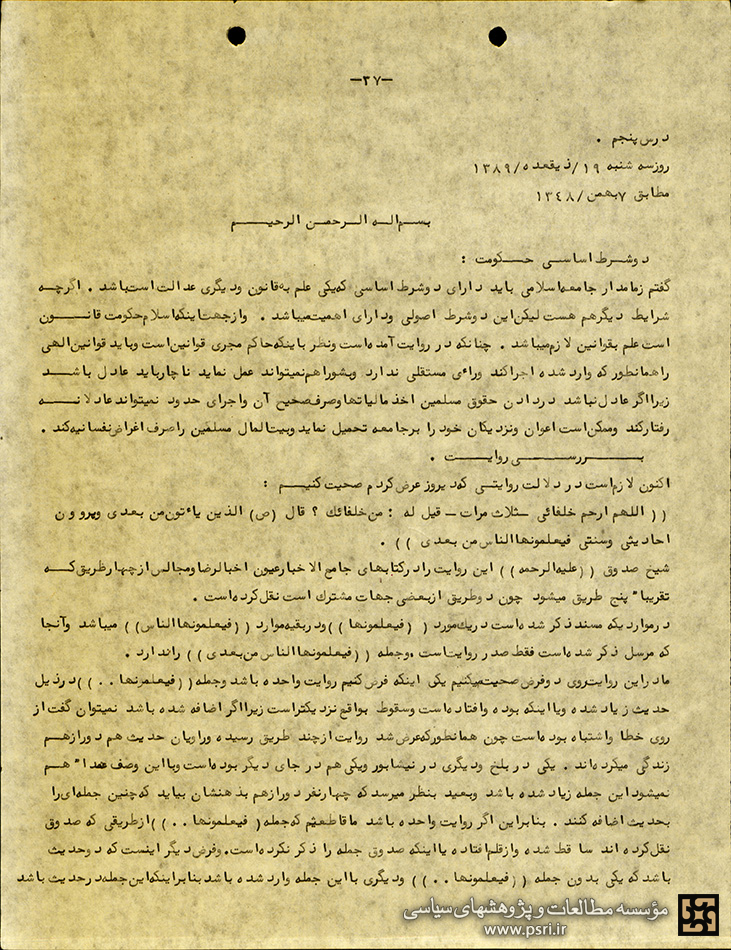 -٢٧-
درس پنجم .
روزسه شنبه ١٩/ذیقعده/١٣٨٩
مطابق ٧بهمن/١٣٤٨
بسم اله الرحمن الرحیم
دوشرط اساسی حکومت :
گفتم زمامدار جامعه اسلامی باید دارای دوشرط اساسی که یکی علم به قانون ودیگری عدالت است باشد . اگرچه
شرایط دیگرهم هست لیکن این دوشرط اصولی ودارای اهمیت میباشد . وازجهت اینکه اسلام حکومت قانون
است علم بقوانین لازم میباشد . چنانکه در روایت آمده است ونظر باینکه حاکم مجری قوانین است وباید قوانین الهی
راهمانطور که وارد شده اجراکند ورای مستقلی ندارد وبشوراهم نمیتواند عمل نماید ناچارباید عادل باشد
زیرااگرعادل نباشد دردادن حقوق مسلمین اخذ مالیاتها وصرف صحیح آن واجرای حدود نمیتواند عادلانه
رفتارکند وممکن است اعوان ونزدیکان خود را برجامعه تحمیل نماید وبیت المال مسلمین راصرف اغراض نفسانیه کند .
بررسی روایت .
اکنون لازم است در دلالت روایتی که دیروز عرض کردم صحبت کنیم :
(( اللهم ارحم خلفائی - ثلاث مرات - قیل له : من خلفائك ؟ قال (ص) الذین یاءتون من بعدی ویروون
احادیثی وسنتی فیعلمونها الناس من بعدی )) .
شیخ صدوق ((علیه الرحمه)) این روایت رادرکتابهای جامع الاخبارعیون اخبالرضا ومجالس ازچهارطریق که
تقریبا" پنج طریق میشود چون دوطریق ازبعضی جهات مشترك است نقل کرده است .
درمواردیکه مسند ذکر شده است دریك مورد (( فیعلمونها ))ودربقیه موارد ((فیعلمونها الناس)) میباشد وآنجا
که مرسل ذکر شده است فقط صدر روایت است .وجمله ((فیعلمونها الناس من بعدی )) راندارد .
مادراین روایت روی دوفرض صحبت میکنیم یکی اینکه فرض کنیم روایت واحده باشد وجمله((فیعلمونها . . ))درذیل
حدیث زیاد شده ویااینکه بوده وافتاده است وسقوط بواقع نزدیکتراست زیرااگر اضافه شده باشد نمیتوان گفت از
روی خطا واشتباه بوده است چون همانطورکه عرض شد روایت ازچند طریق رسیده وراویان حدیث هم دورازهم
زندگی میکرده اند . یکی در بلخ ودیگری در نیشابور ویکی هم در جای دیگر بوده است وبااین وصف عمدا" هم
نمیشوداین جمله زیاد شده باشد وبعید بنظر میرسد که چهارنفر دورازهم بذهنشان بیاید که چنین جمله ای را
بحدیث اضافه کنند . بنابراین اگر روایت واحده باشد ماقاطعیم که جمله( فیعلمونها . . ))ازطریقی که صدوق
نقل کرده اند ساقط شده وازقلم افتاده یااینکه صدوق جمله را ذکر نکرده است. وفرض دیگر اینست که دوحدیث
باشد که یکی بدون جمله ((فیعلمونها . . )) ودیگری بااین جمله وارد شده باشد بنابراینکه این جمله درحدیث باشد
مؤسسه مطالعات و پژوهشهای سیاسی
www.psri.ir